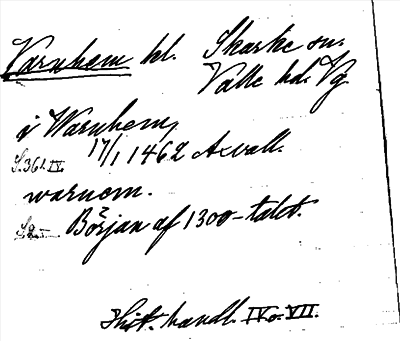 Varnhem kl. Skarke sn.
Valle hd. Vg
i Warnhem,
17/1 1462 Axvall.
S. 361. IV.
warnem.
Början af 1300-talet.
Hist. handl. IV o. VII.